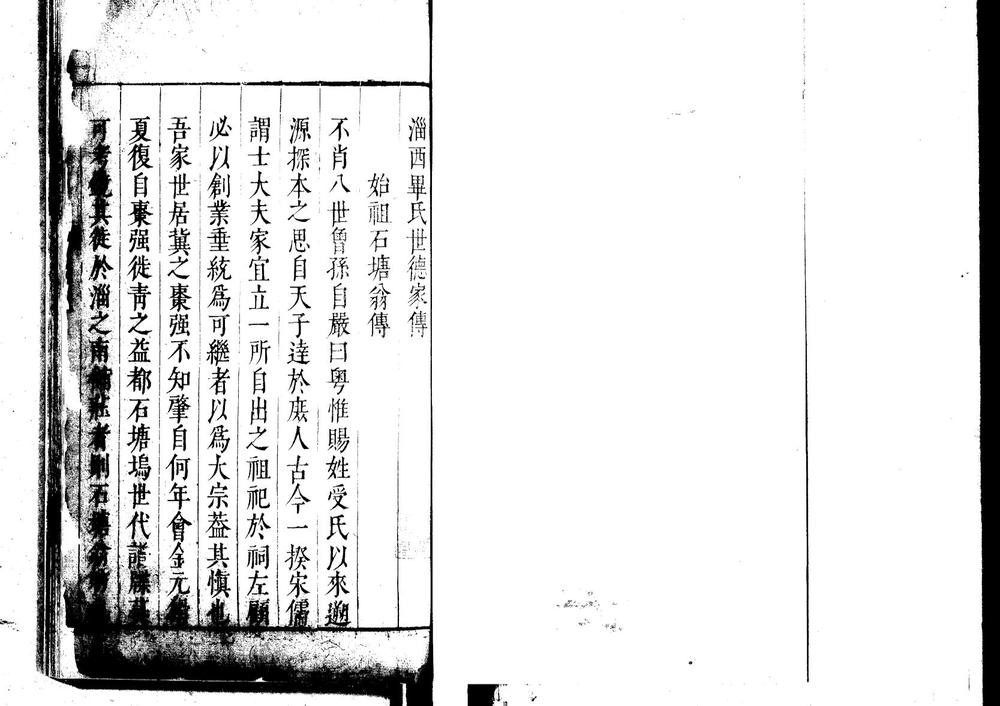 淄西畢氏世德家傳
始祖石塘翁傳
不肖八世魯孫自嚴曰粵惟賜姓受氏以來遡
源探本之思自天子達於庶人古今一揆宋儒
謂士大夫家宜立一所自出之祖祀於祠左顧
必以創業垂統爲可繼者以爲大宗葢其愼也
吾家世居冀之棗强不知肇自何年會金元
夏復自棗强徙靑之益都石塘塢世代譜牒莫
可考其徙於淄之南者則石塘翁